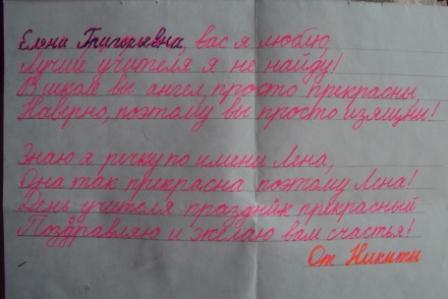 Елена Григорьевна, вас я люблю,
Лучше учителя я не найду!
В школе вы ангел, просто прекрасны,
Наверно, поэтому вы просто изящны!
Знаю я речку по имени Лена,
Она так прекрасна поэтому Лена!
День учителя праздник прекрасный
Поздравляю и желаю вам счастья!
От Никиты